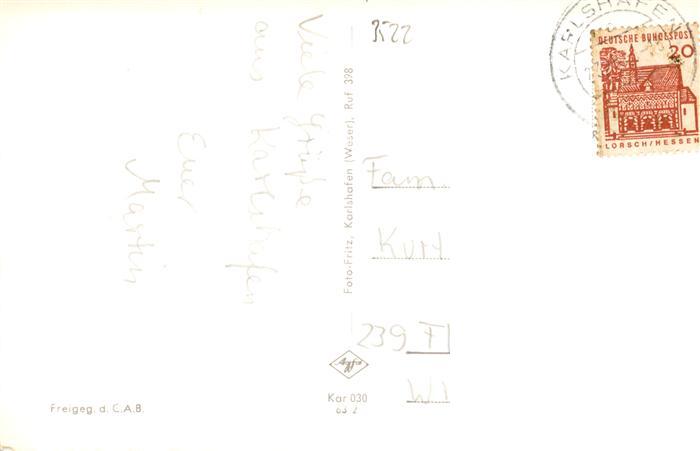 Viele Grüße
aus Karlshafen
Euer
Martin
3522
Foto-Fritz, Karlshafen (Weser), Ruf 398
Fam
Kurt
239 Fl
Agfa
Kar 030
63 2
Freigeg. d. C.A.B.
KARLSHAFEN
DEUTSCHE BUNDESPOST
20
LORSCH/HESSEN